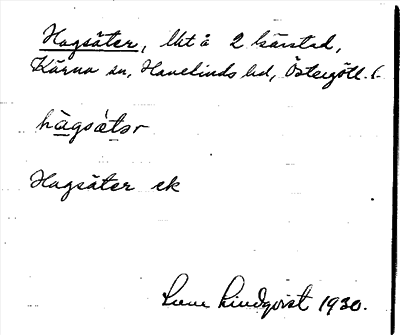 Hagsäter, lht å 2 Kärstad,
Kärna sn, Hanekinds hd, Östergötl. l
hàgsä́tər
Hagsäter ek
Sune Lindqvist 1930.